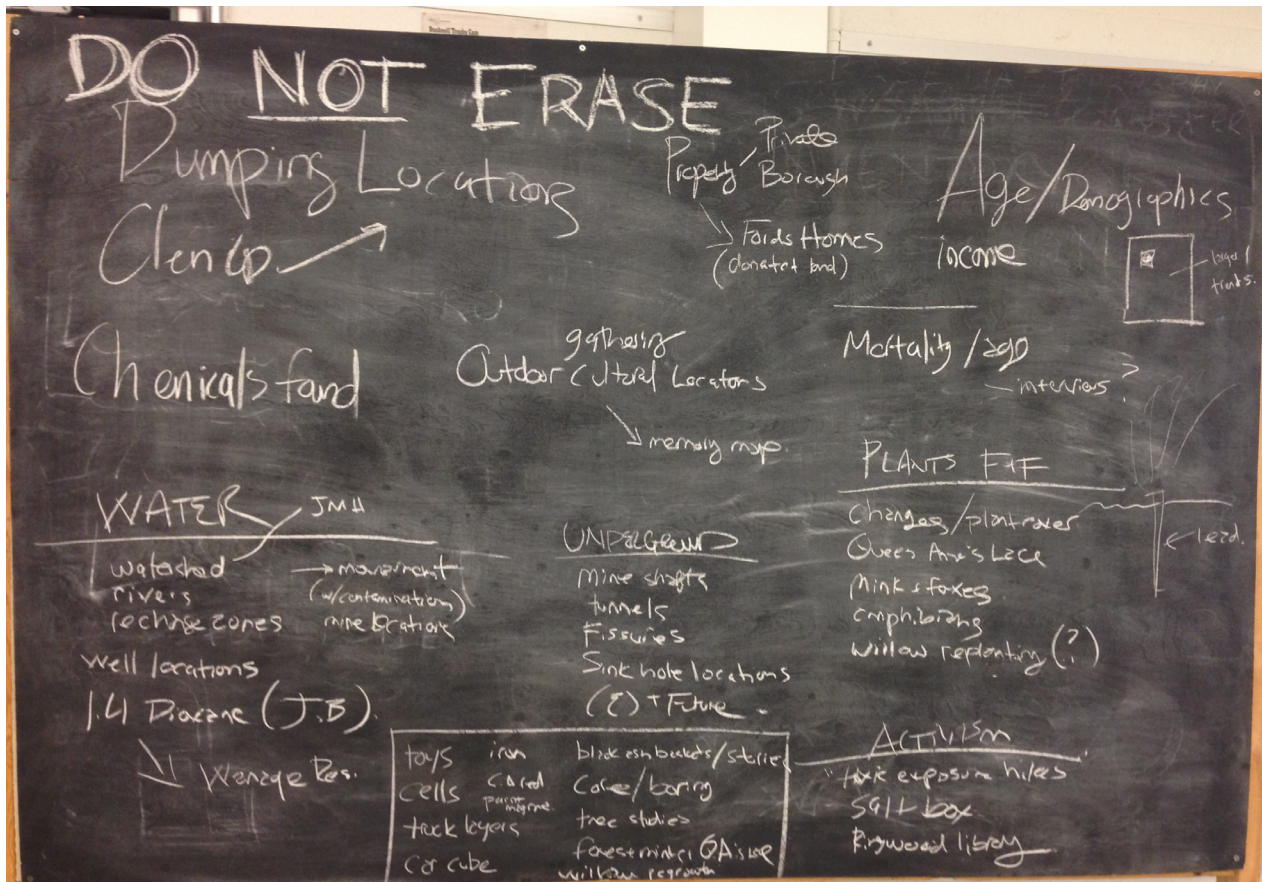 DO NOT ERASE
Dumping Locations
Clenco
Chemicals found
Property
Private
Borough
Fords Homes
(donated land)
Age/Demographics
income
Mortality/age
interviews?
gathering
Outdoor Cultural Locators
memory map.
WATER
JMH
watershed
rivers
recharge zones
well locations
1.4 Dioxane (J.B)
Wanaque Res.
→ movement
(w/contamination)
mine locations
UNDERGROUND
mine shafts
tunnels
Fissures
Sink hole locations
+ Future
PLANTS F+F
changes/plantrover
Queen Anne's Lace
Mink & foxes
amphibians
willow replanting (?)
← lead.
ACTIVISM
toxic exposure hikes
Salt box
Ringwood library
toys
cells
truck layers
car cube
iron
black ash baskets/stories
Core/boring
tree studies
willow regrowth